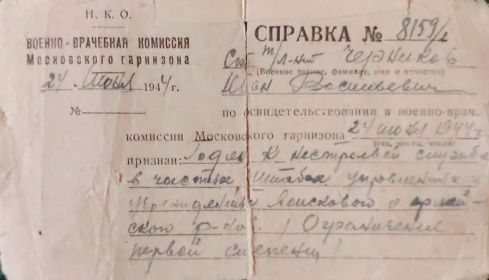 Н. К. О.
ВОЕННО-ВРАЧЕБНАЯ КОМИССИЯ
Московского гарнизона
24 июля 1944 г.
№
СПРАВКА № 8159/2
Ст т/л-нт Черников
(Военное звание, фамилия, имя и отчество)
Иван Васильевич
по освидетельствовании в военно-врач.
комиссии Московского гарнизона 24 июля 1944 г
признан: Годен к нестроевой службе
в частях штабах управлениях и
учреждениях войскового и армей-
ского р-нов. (Ограничения
первой степени)